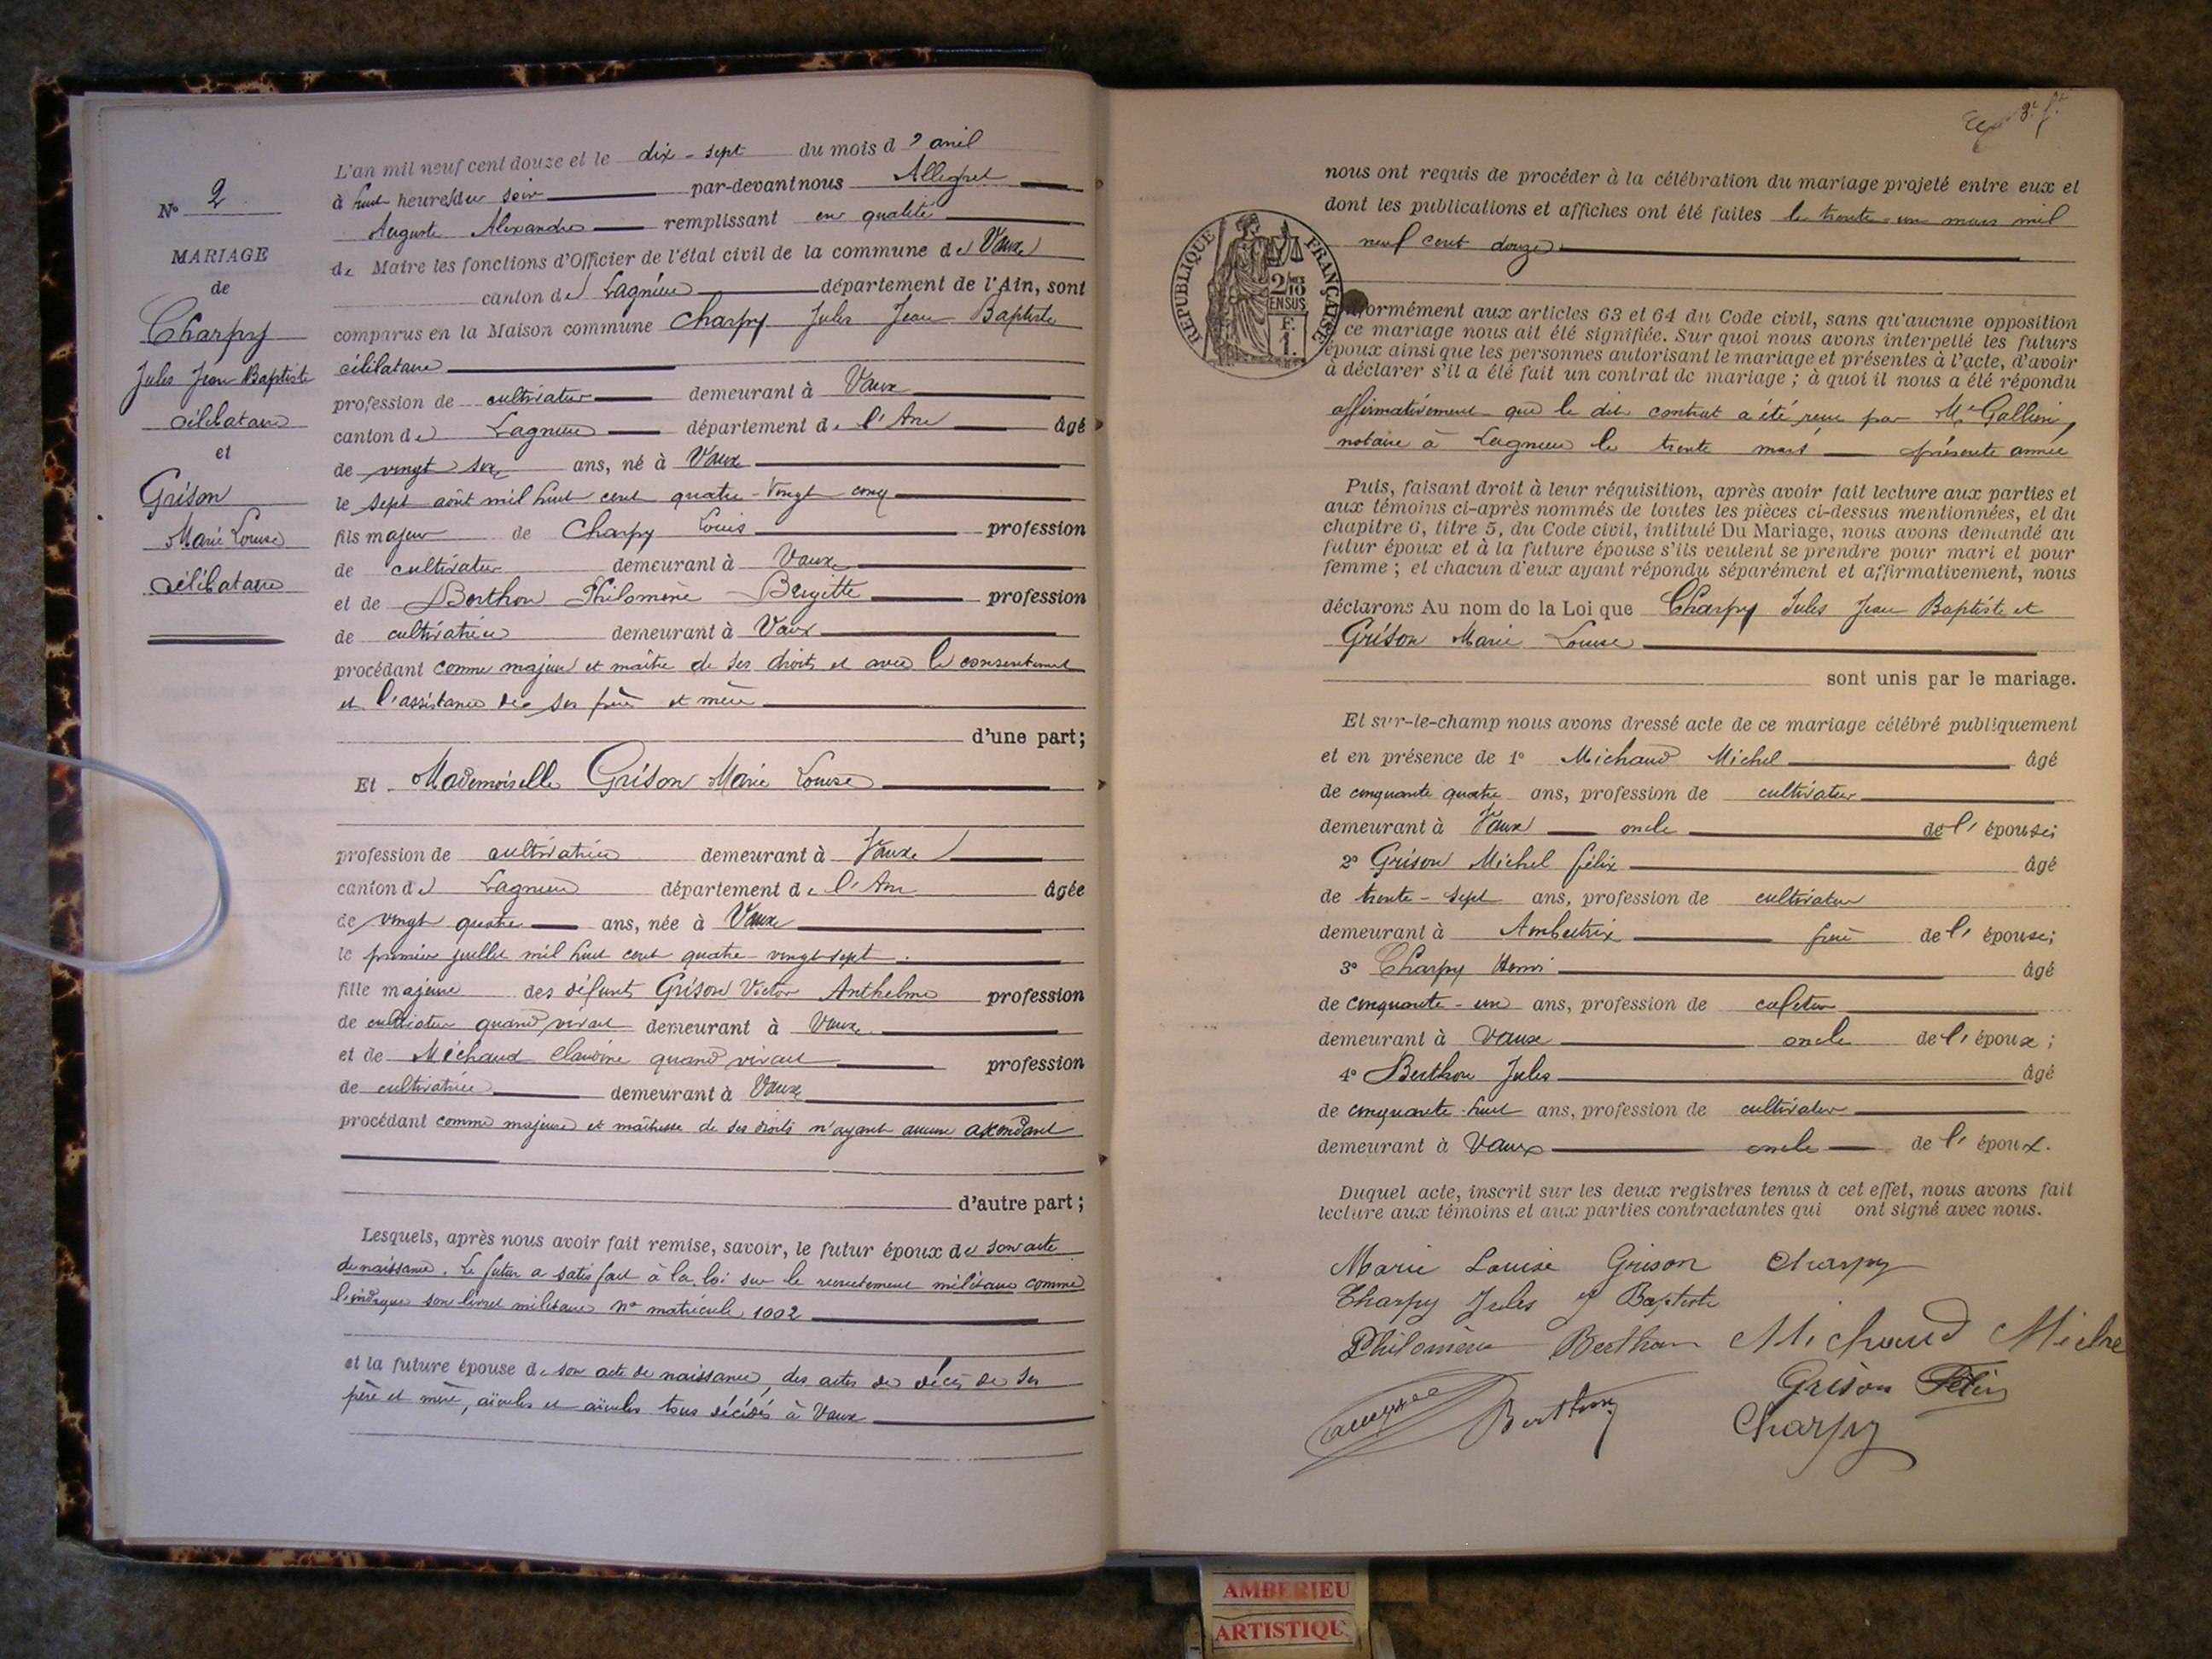 N° 2
MARIAGE
de
Charpy
Jules Jean Baptiste
célibataire
et
Grison
Marie Louise
célibataire
L'an mil neuf cent douze et le dix-sept du mois d'avril
à huit heures du soir par-devant nous
Auguste Alexandre remplissant en qualité
de Maire les fonctions d'Officier de l'état civil de la commune de Vaux
canton de Lagnieu département de l'Ain, sont
comparus en la Maison commune Charpy Jules Jean Baptiste
célibataire
profession de cultivateur demeurant à Vaux
canton de Lagnieu département de l'Ain âgé
de vingt six ans, né à Vaux
le sept août mil huit cent quatre-vingt cinq
fils majeur de Charpy Louis profession
de cultivateur demeurant à Vaux
et de Berthon Philomène Brigitte profession
de cultivatrice demeurant à Vaux
procédant comme majeur et maître de ses droits et avec le consentement
et l'assistance de ses père et mère
d'une part;
Et Mademoiselle Grison Marie Louise
profession de cultivatrice demeurant à Vaux
canton de Lagnieu département de l'Ain âgée
de vingt quatre ans, née à Vaux
le premier juillet mil huit cent quatre-vingt-sept
fille majeure des défunts Grison Victor Anthelme profession
de cultivateur quand vivait demeurant à Vaux
et de Michaud Claudine quand vivait profession
de cultivatrice demeurant à Vaux
procédant comme majeure et maîtresse de ses droits n'ayant aucun ascendant
d'autre part;
Lesquels, après nous avoir fait remise, savoir, le futur époux de son acte
de naissance. Le futur a satisfait à la loi sur le recrutement militaire comme
l'indique son livret militaire n° matricule 1002
et la future épouse de son acte de naissance, des actes de décès de ses
père et mère, aïeules et aïeules tous décédés à Vaux
3e f.t
nous ont requis de procéder à la célébration du mariage projeté entre eux et
dont les publications et affiches ont été faites le trente-un mars mil
neuf cent douze
RÉPUBLIQUE FRANÇAISE
2/10
EN SUS
F.
1.
formément aux articles 63 et 64 du Code civil, sans qu'aucune opposition
ce mariage nous ait été signifiée. Sur quoi nous avons interpellé les futurs
époux ainsi que les personnes autorisant le mariage et présentes à l'acte, d'avoir
à déclarer s'il a été fait un contrat de mariage ; à quoi il nous a été répondu
affirmativement que le dit contrat a été reçu par Me
notaire à Lagnieu le trente mars présente année
Puis, faisant droit à leur réquisition, après avoir fait lecture aux parties et
aux témoins ci-après nommés de toutes les pièces ci-dessus mentionnées, et du
chapitre 6, titre 5, du Code civil, intitulé Du Mariage, nous avons demandé au
futur époux et à la future épouse s'ils veulent se prendre pour mari et pour
femme ; et chacun d'eux ayant répondu séparément et affirmativement, nous
déclarons Au nom de la Loi que Charpy Jules Jean Baptiste et
Grison Marie Louise
sont unis par le mariage.
Et sur-le-champ nous avons dressé acte de ce mariage célébré publiquement
et en présence de 1° Michaud Michel âgé
de cinquante quatre ans, profession de cultivateur
demeurant à Vaux oncle de l'épouse;
2° Grison Michel félix âgé
de trente-sept ans, profession de cultivateur
demeurant à Ambutrix frère de l'épouse;
3° Charpy Henri âgé
de cinquante-un ans, profession de cafetier
demeurant à Vaux oncle de l'époux ;
4° Berthon Jules âgé
de cinquante-huit ans, profession de cultivateur
demeurant à Vaux oncle de l'époux.
Duquel acte, inscrit sur les deux registres tenus à cet effet, nous avons fait
lecture aux témoins et aux parties contractantes qui ont signé avec nous.
Marie Louise Grison Charpy
Charpy Jules Baptiste
Philomène Berthon Michaud Michel
Grison Félix
Berthon Charpy
AMBERIEU
ARTISTIQU